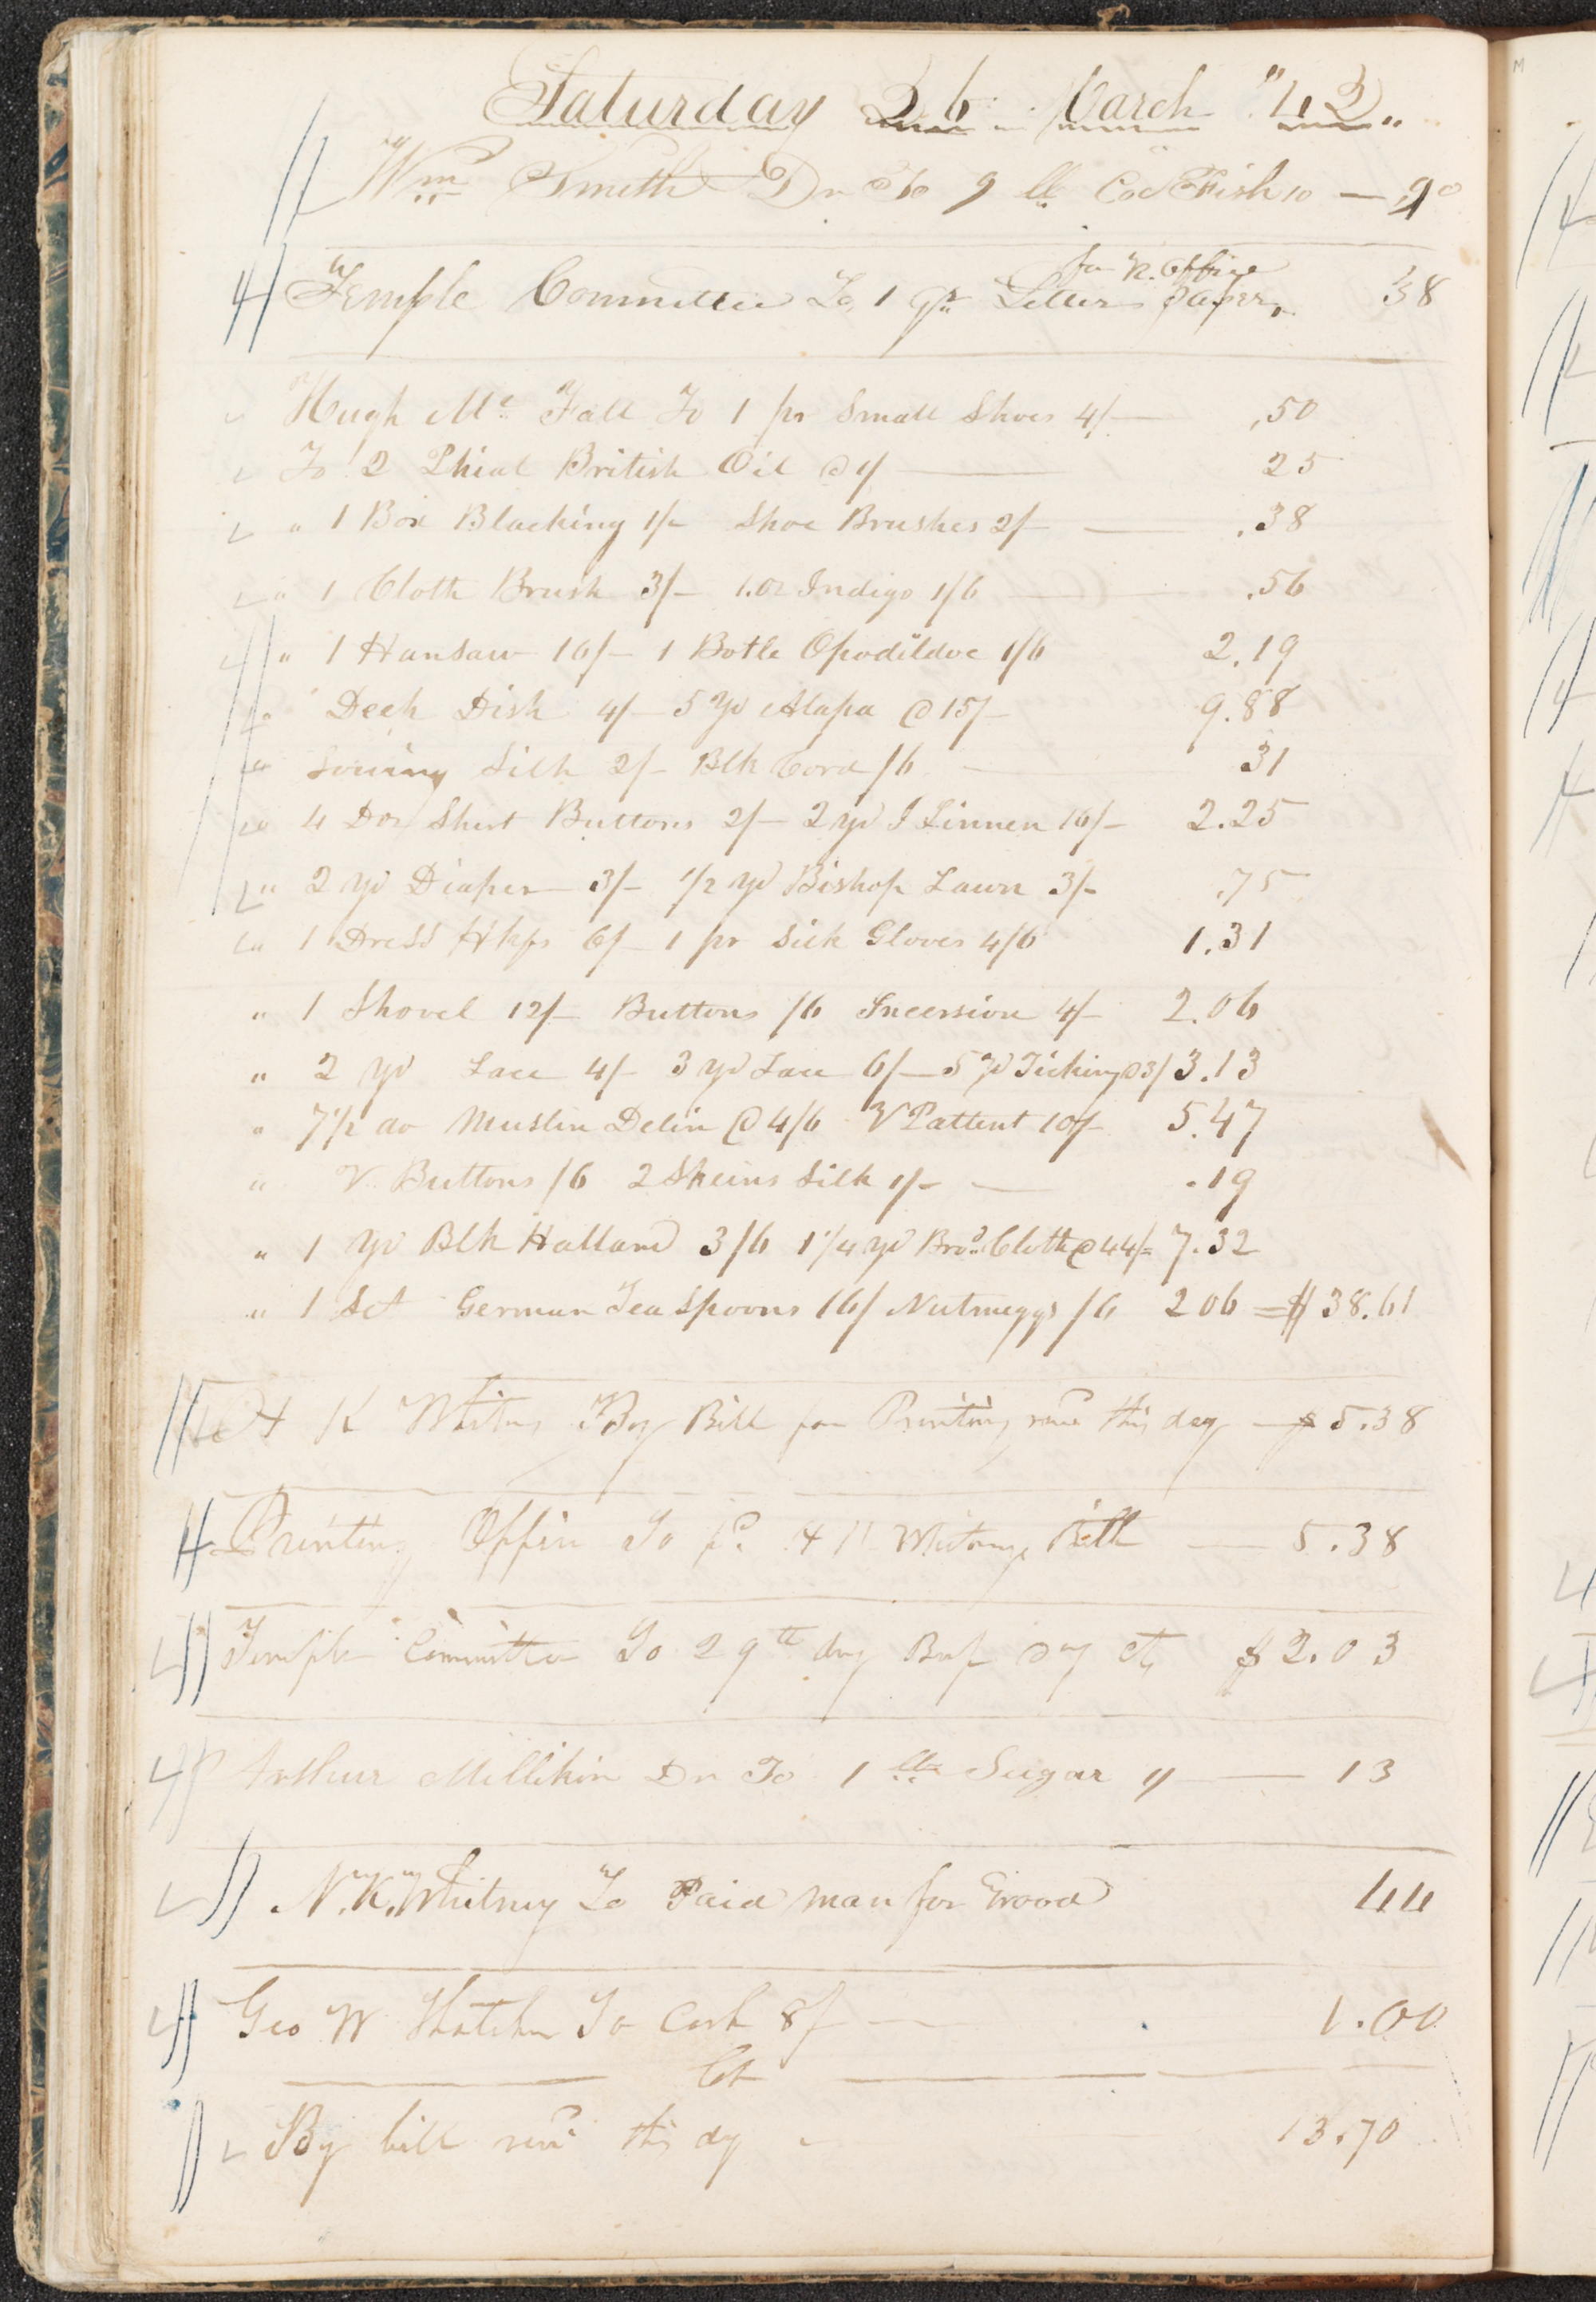 Saturday 26 March "42"
Wm Smith Dr To 9 lb Cod Fish 10 — ,90
for R. Office
Temple Committee To 1 qr Letter paper, 38
Hugh Mc Fall To 1 pr Small Shoes 4/— ,50
To 2 Phial British Oil @ 1/ — 25
" 1 Box Blacking 1/- Shoe Brushes 2/- — .38
" 1 Cloth Brush 3/- 1.oz Indigo 1/6 — .56
" 1 Hansaw 16/- 1 Botle Opodildoc 1/6 2.19
" Deep Dish 4/- 5 yd Alapa @ 15/- 9.88
" Sowing Silk 2/- Blk Cord /6 — 31
" 4 Doz Shirt Buttons 2/- 2 yd I Linnen 16/- 2.25
" 2 yd Diaper 3/- 1/2 yd Bishop Lawn 3/- .75
" 1 Dress Hkfs 6/- 1 pr Silk Gloves 4/6 1.31
" 1 Shovel 12/- Buttons /6 Incersion 4/- 2.06
" 2 yd Lace 4/- 3 yd Lace 6/- 5 yd Ticking @3/ 3.13
" 7 1/2 do Muslin Delin @ 4/6 V Pattent 10/- 5.47
" V. Buttons /6 2 Skeins Silk 1/- — .19
" 1 yd Blk Holland 3/6 1 1/4 yd Brod Cloth @ 44/= 7.32
" 1 Set German Tea Spoons 16/ Nutmeggs /6 2 06 = $ 38.61
K Whitny By Bill for Printing recd this day — $ 5.38
Printing Office To pd Whitnys Bill — 5.38
Temple Committee To 29 lb dry Beef @ 7 cts $ 2.03
Arthur Millikin Dr To 1 lb Sugar 1/ — 13
N. K. Whitney To Paid man for Wood 44
Geo W Thatcher To Cash 8/ — 1.00
— Cr —
By bill recd this dy 13.70